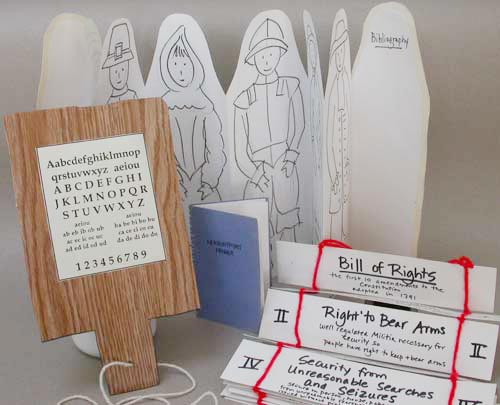 Bibliography
Aabcdefghijklmnop
qrstuvwxyz aeiou
ABCDEFGHI
JKLMNOPQR
STUVWXYZ
aeiou aeiou
ab eb ib ob ub ba be bi bo bu
ac ec ic oc uc ca ce ci co cu
ad ed id od ud da de di do du
123456789
PRIMER
Bill of Rights
the first 10 amendments to the
Constitution
adopted in 1791
II Right to Bear Arms II
Well regulated Militia necessary for
Security so
people have right to keep + bear arms
IV Security from IV
Unreasonable Searches
and Seizures